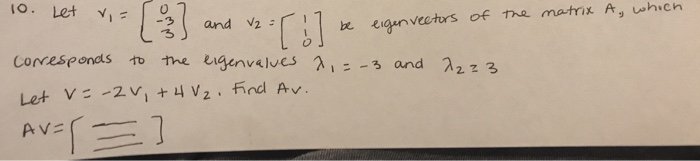 10. Let v₁ = [0 -3 3] and v2 = [1 1 0] be eigenvectors of the matrix A, which
corresponds to the eigenvalues λ₁ = -3 and λ₂ = 3
Let V = -2V₁ + 4V₂. Find Av.
AV = [ ]